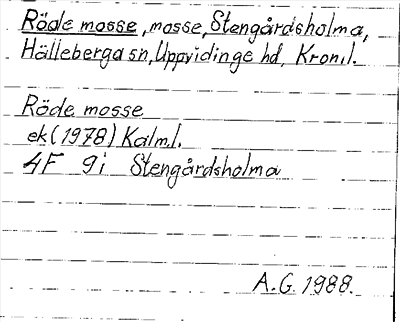 Röde mosse, mosse, Stengårdsholma,
Hälleberga sn, Uppvidinge hd, Kron.l.
Röde mosse
ek (1978) Kalm.l.
4F 9i Stengårdsholma
A.G. 1988.